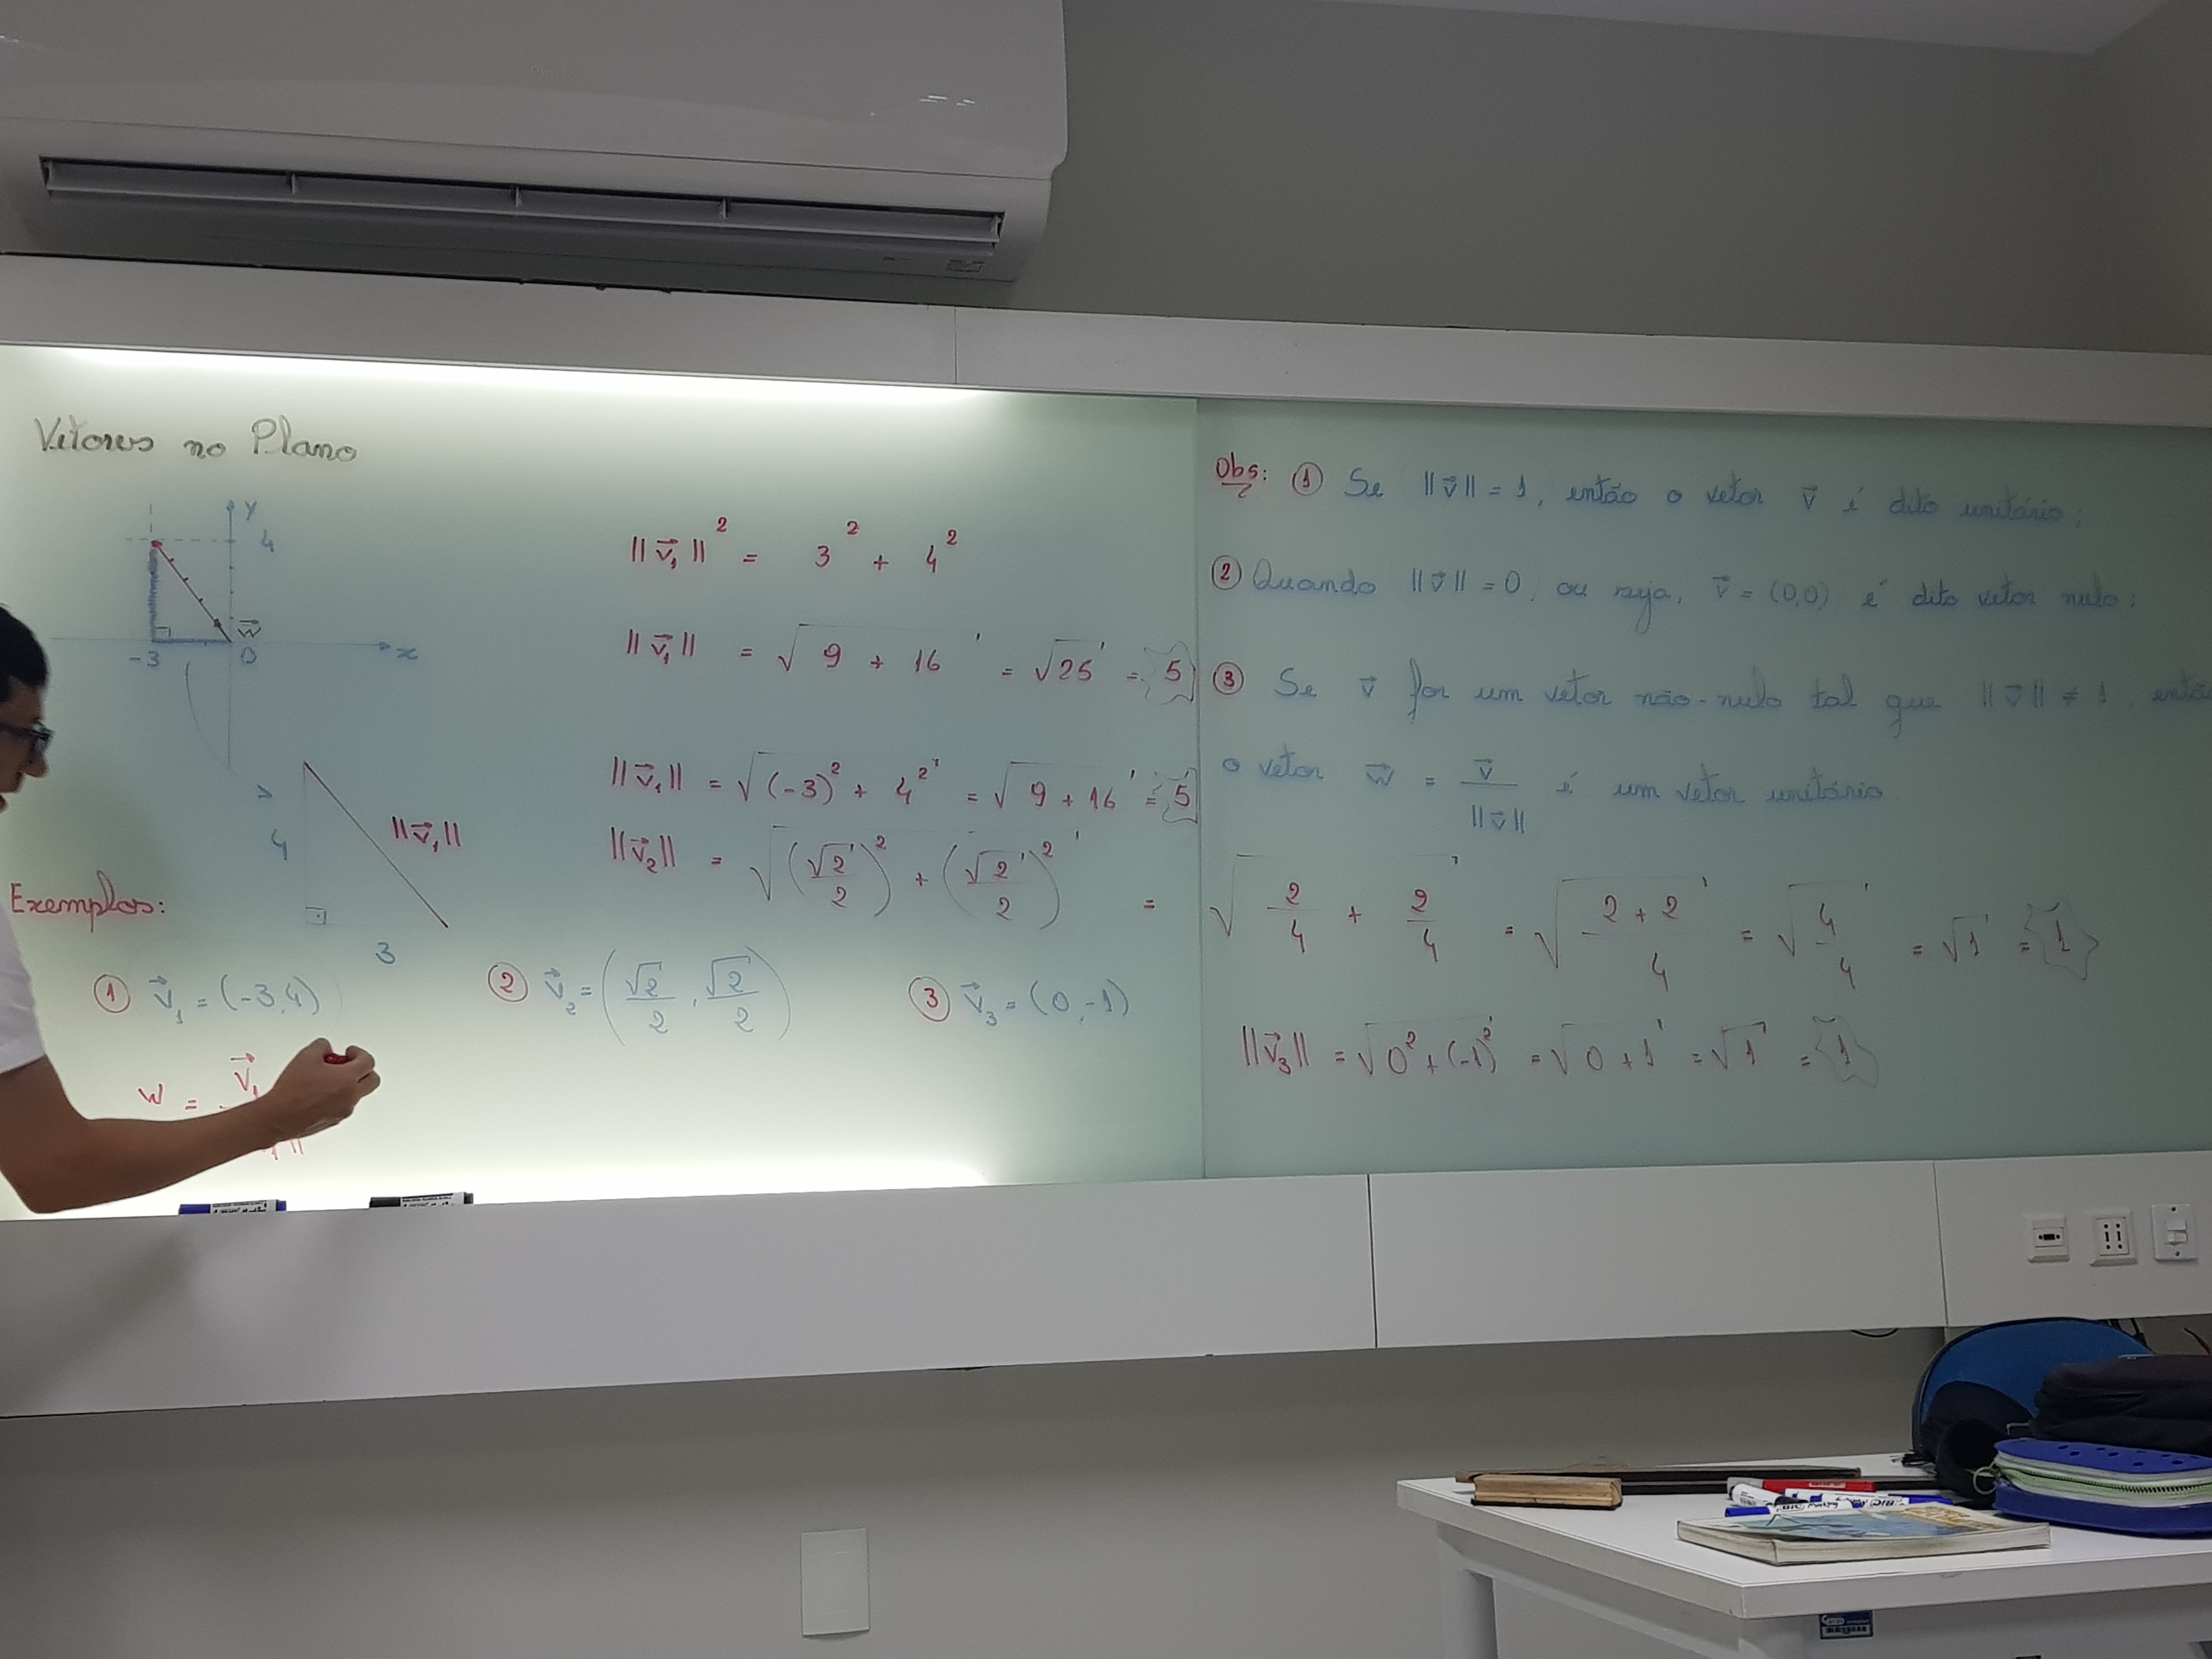 Vetores no Plano
y
4
w⃗
-3 0 x
4 ||v⃗₁||
3
||v⃗₁||² = 3² + 4²
||v⃗₁|| = √(9 + 16) = √25 = 5
||v⃗₁|| = √((-3)² + 4²) = √(9 + 16) = 5
||v⃗₂|| = √((√2/2)² + (√2/2)²) = √(2/4 + 2/4) = √((2 + 2)/4) = √(4/4) = √1 = 1
Exemplos:
① v⃗₁ = (-3,4) ② v⃗₂ = (√2/2, √2/2) ③ v⃗₃ = (0,-1)
w = v⃗₁
Obs: ① Se ||v⃗|| = 1, então o vetor v⃗ é dito unitário;
② Quando ||v⃗|| = 0, ou seja, v⃗ = (0,0) é dito vetor nulo;
③ Se v⃗ for um vetor não-nulo tal que ||v⃗|| ≠ 1, então
o vetor w⃗ = v⃗/||v⃗|| é um vetor unitário
||v⃗₃|| = √(0² + (-1)²) = √(0 + 1) = √1 = 1
BIC Marking BIC